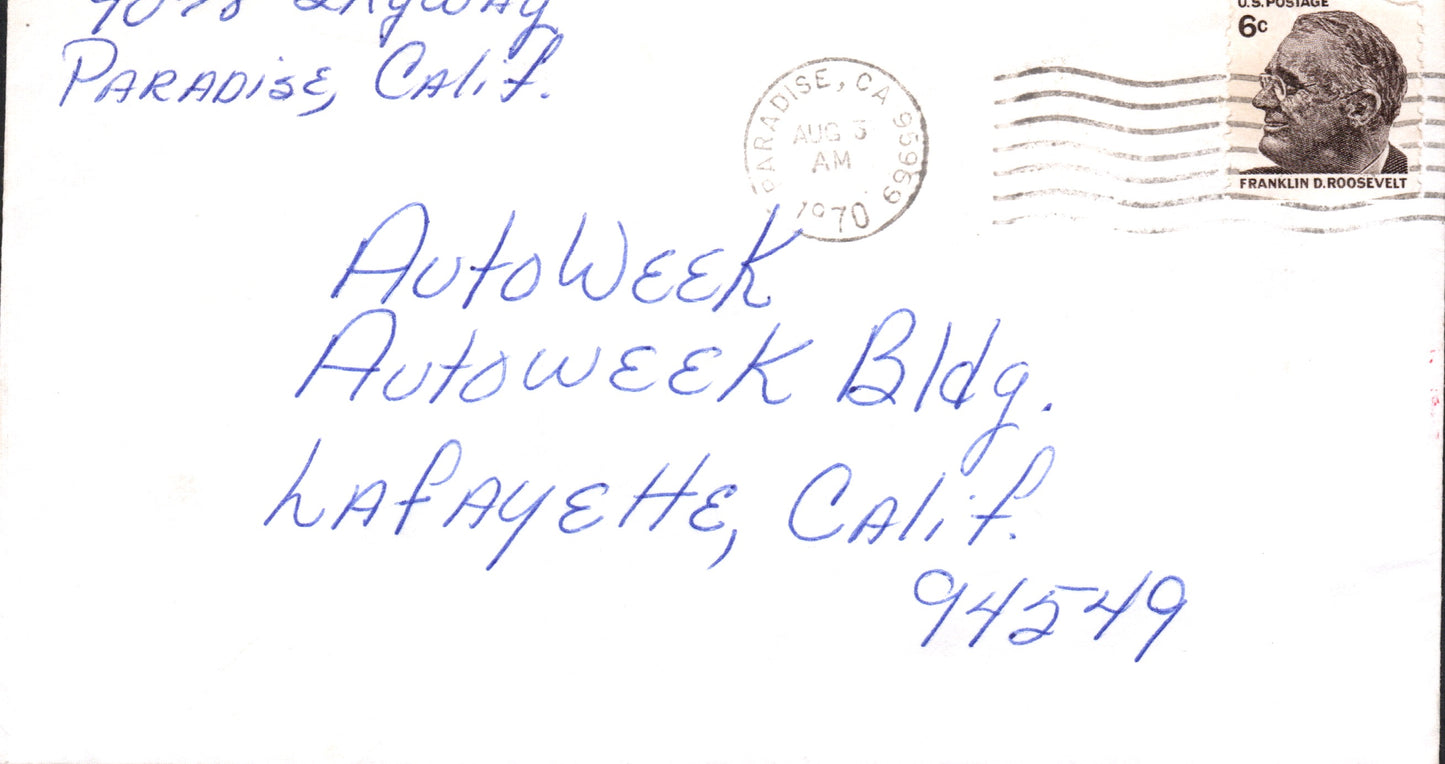 Skyway
Paradise, Calif.
U.S. POSTAGE
6c
FRANKLIN D. ROOSEVELT
PARADISE, CA 95969
AUG 3
AM
1970
AutoWeek
Autoweek Bldg.
Lafayette, Calif.
94549